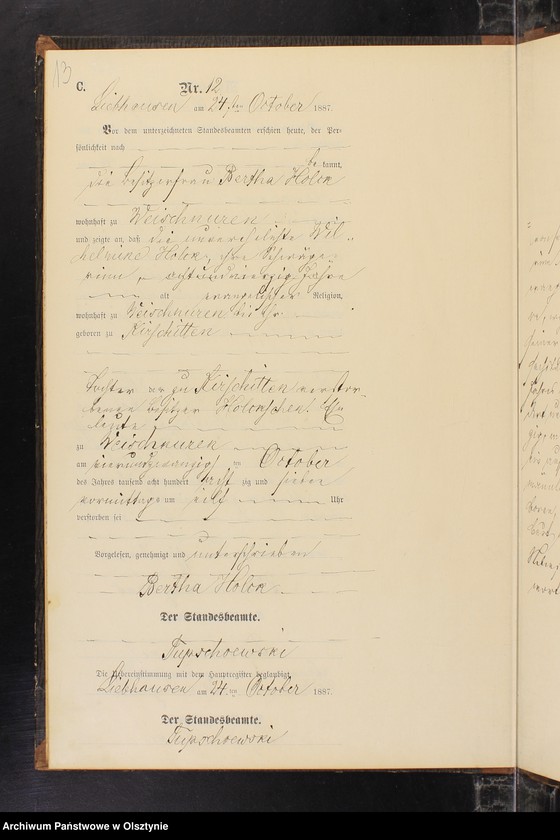 13
C.
Nr. 12
Liebhausen am 24. ten October 1887.
Vor dem unterzeichneten Standesbeamten erschien heute, der Per-
sönlichkeit nach
be kannt,
die Besitzerfrau Bertha Holon
wohnhaft zu Weischnuren
und zeigte an, daß die unverehelichte Wil-
helmine Holon, ihre Schwäge-
rinn, achtundvierzig Jahre
alt evangelischer Religion,
wohnhaft zu Weischnuren bei ihr
geboren zu Kirschitten
Tochter der zu Kirschitten verstor-
benen Besitzer Holonschen Ehe
leute
zu Weischnuren
am vierundzwanzig ten October
des Jahres tausend acht hundert acht zig und sieben
vormittags um elf Uhr
verstorben sei
Vorgelesen, genehmigt und unterschrieben
Bertha Holon
Der Standesbeamte.
Tupschoewski
Die Uebereinstimmung mit dem Hauptregister beglaubigt
Liebhausen am 24. ten October 1887.
Der Standesbeamte.
Tupschoewski
Archiwum Państwowe w Olsztynie